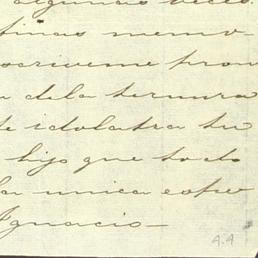 algunas veces.
tinas memo
escriveme pron
a de la ternura
te idolatra tu
hijo que todo
la unica espe
Ignacio—
4.4